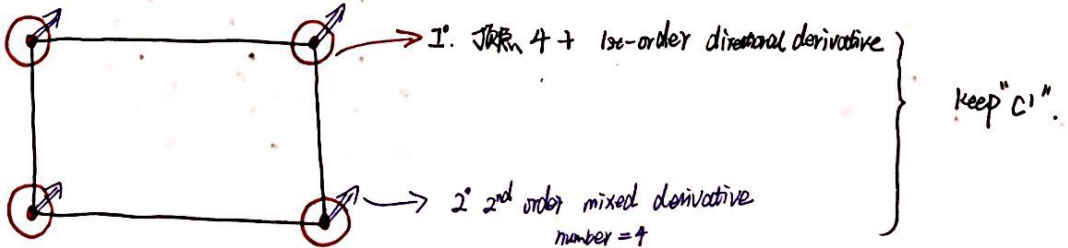 1°. 顶点 4 + 1st-order directional derivative
keep "C1".
2° 2nd order mixed derivative
number = 4